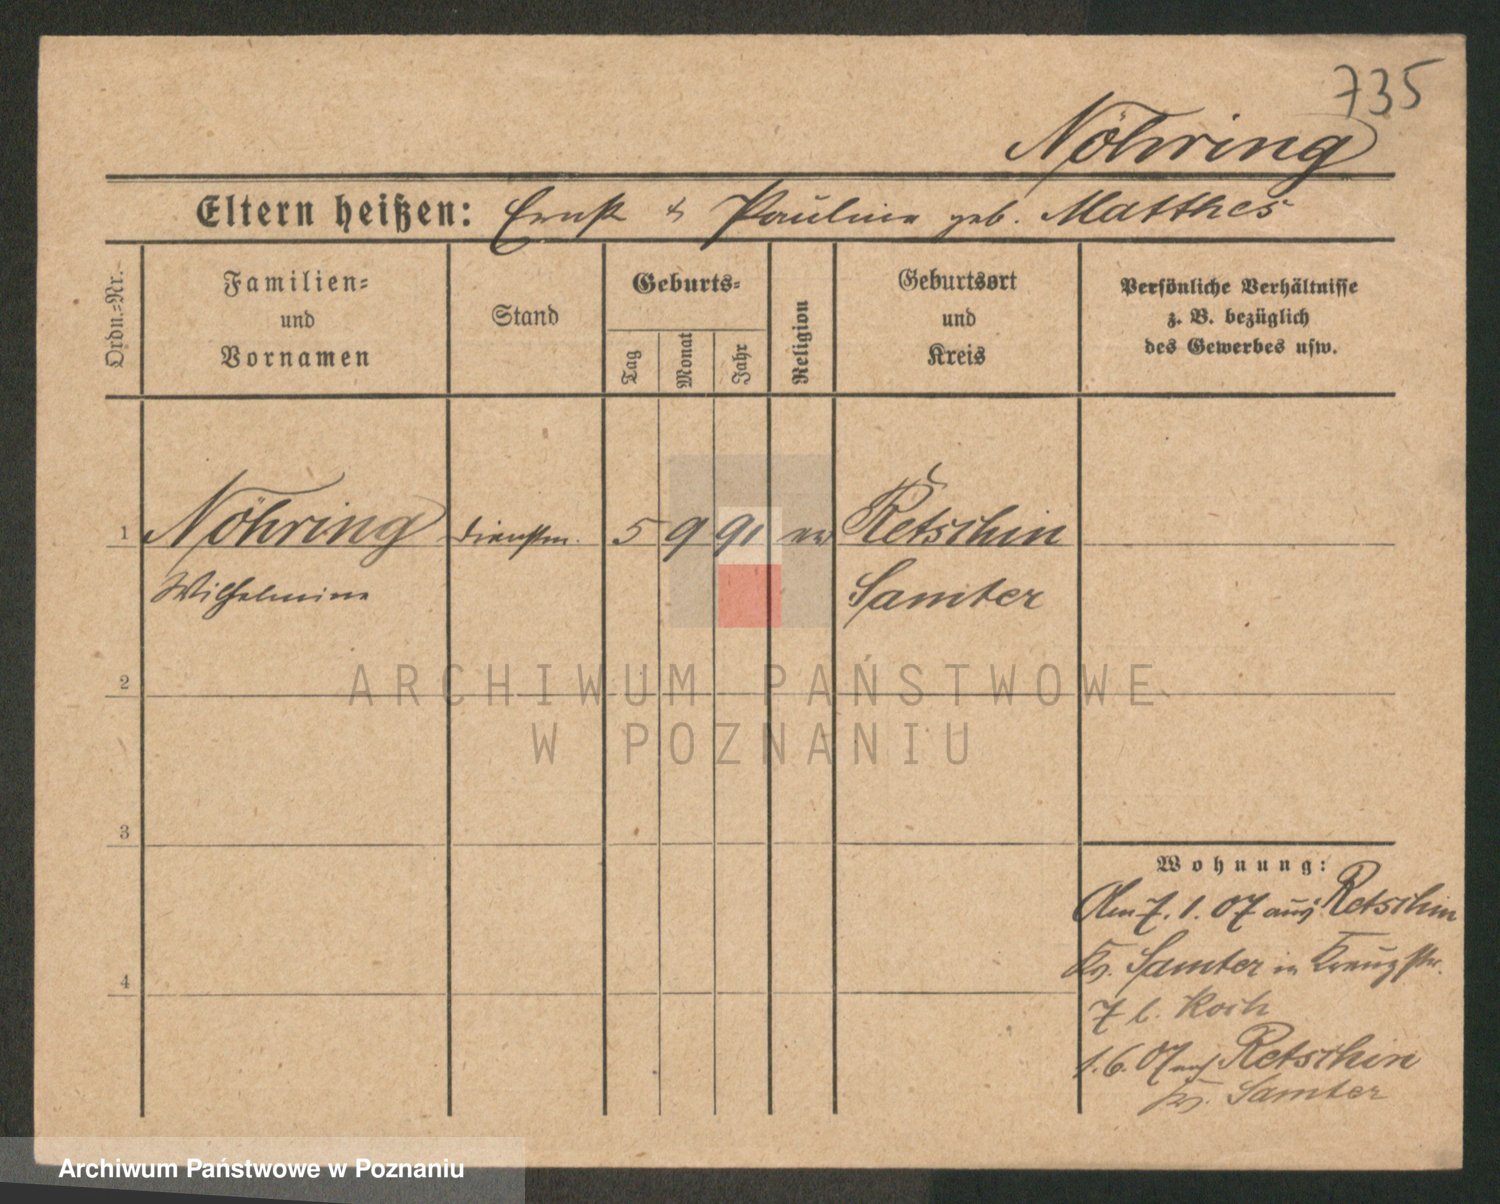 735
Nöhring
Eltern heißen: Ernst & Pauline geb. Matthes
Ordn.-Nr.
Familien-
und
Vornamen
Stand
Geburts-
Tag
Monat
Jahr
Religion
Geburtsort
und
Kreis
Persönliche Verhältnisse
z. B. bezüglich
des Gewerbes usw.
1 Nöhring Dienstm. 5 9 91 ev Retschin
Wilhelmine Samter
2
ARCHIWUM PAŃSTWOWE
W POZNANIU
3
Wohnung:
Am 7. 1. 07 aus Retschin
Kr. Samter in Kreuzstr.
4
7 b. Koch
1. 6. 07 nach Retschin
Kr. Samter
Archiwum Państwowe w Poznaniu